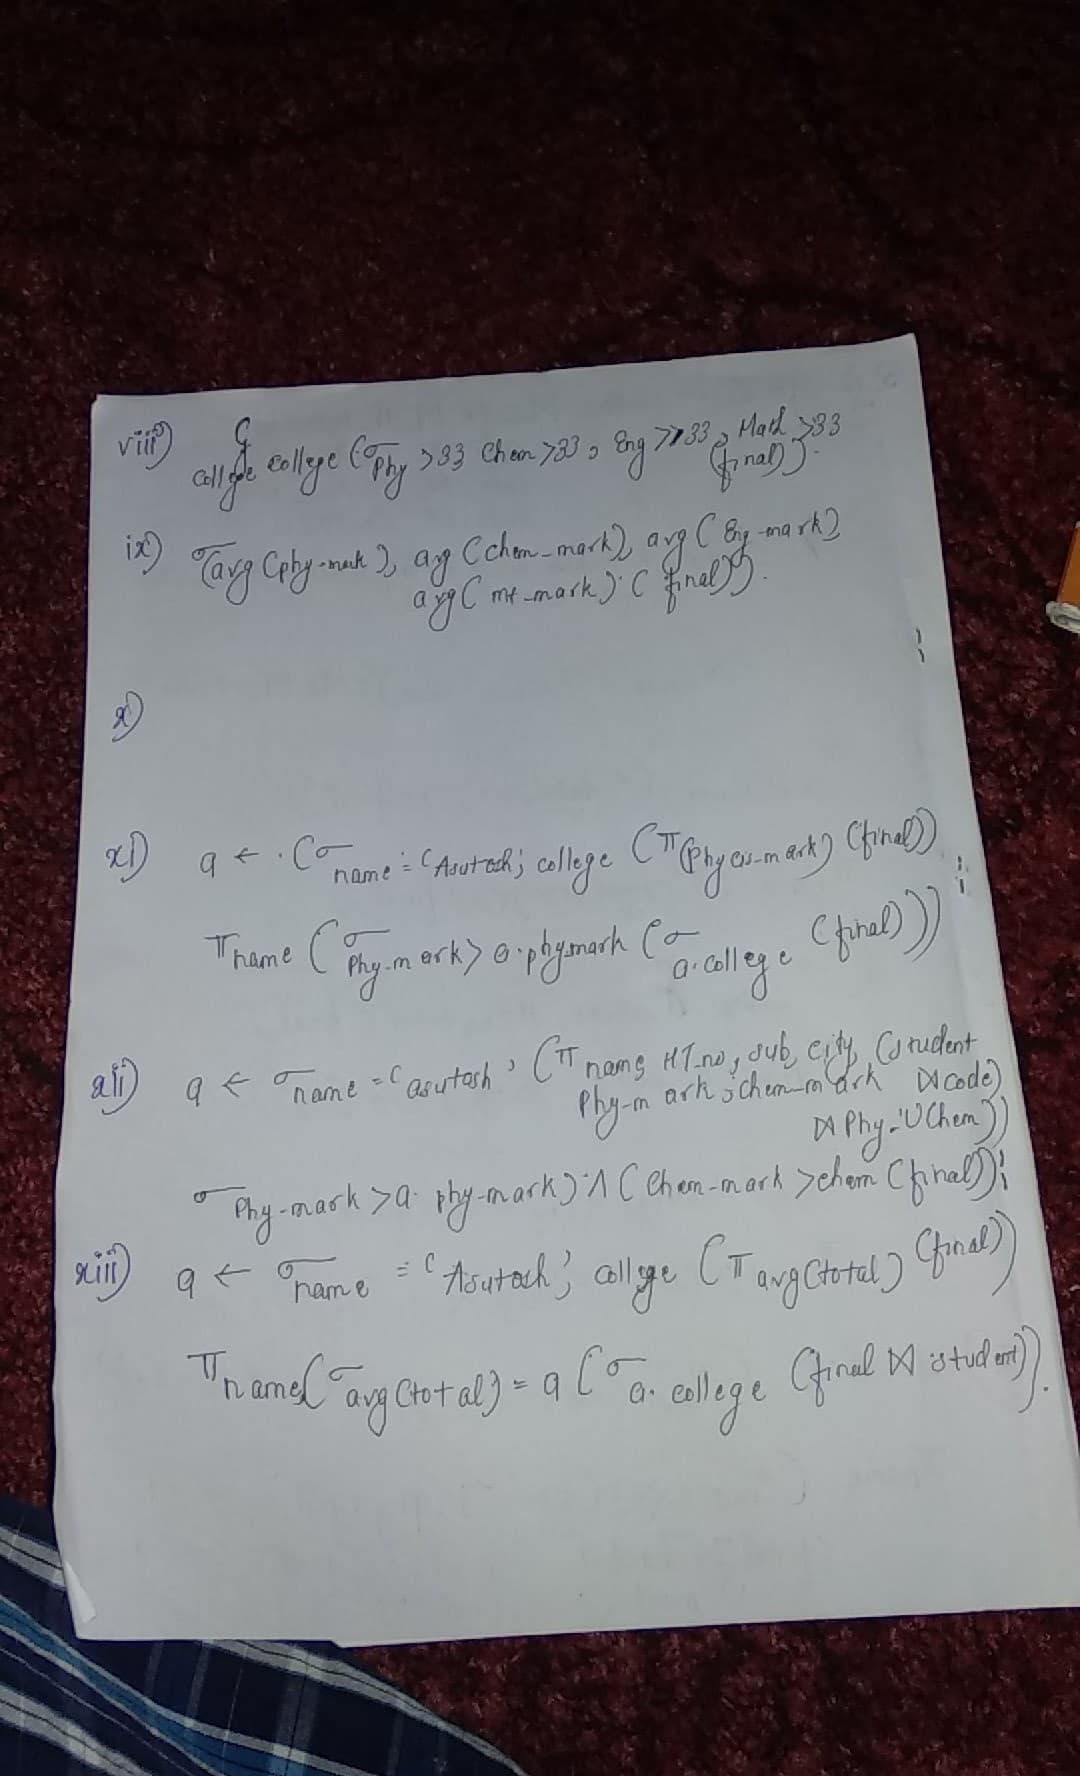 viii) G
college college (σ Phy >33 Chem >33, Eng >33, Math >33
(final)).
ix) σ(avg (phy-mark), avg (chem-mark), avg (Eng-mark)
avg (mt-mark) (final)).
x)
xi) a ← (σ name = 'Asutosh', college (π (Phycis-mark) (final))
π name (σ Phy-mark > a.phymark (σ a.college (final)))
xii) a ← σ name = 'asutosh' (π name, HT-no, sub, city, (student
Phy-mark, chem-mark ⋈ code)
⋈ Phy-U Chem))
σ Phy-mark > a. phy-mark) ∧ (Chem-mark > chem (final))
xiii) a ← σ name = 'Asutosh', college (π avg (total) (final))
π name (σ avg (total) = a (σ a. college (final ⋈ student)).